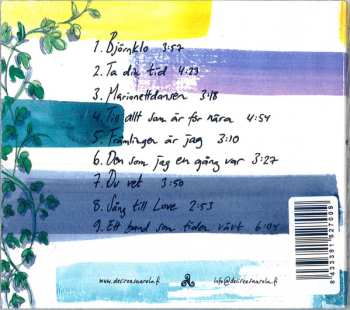 1. Björnklo 3:57
2. Ta din tid 4:23
3. Marionettdansen 3:18
4. Tig allt som är för nära 4:54
5. Främlingen är jag 3:10
6. Den som jag en gång var 3:27
7. Du vet 3:50
8. Sång till Love 2:53
9. Ett band som tiden vävt 6:04
www.desireesaarela.fi info@desireesaarela.fi